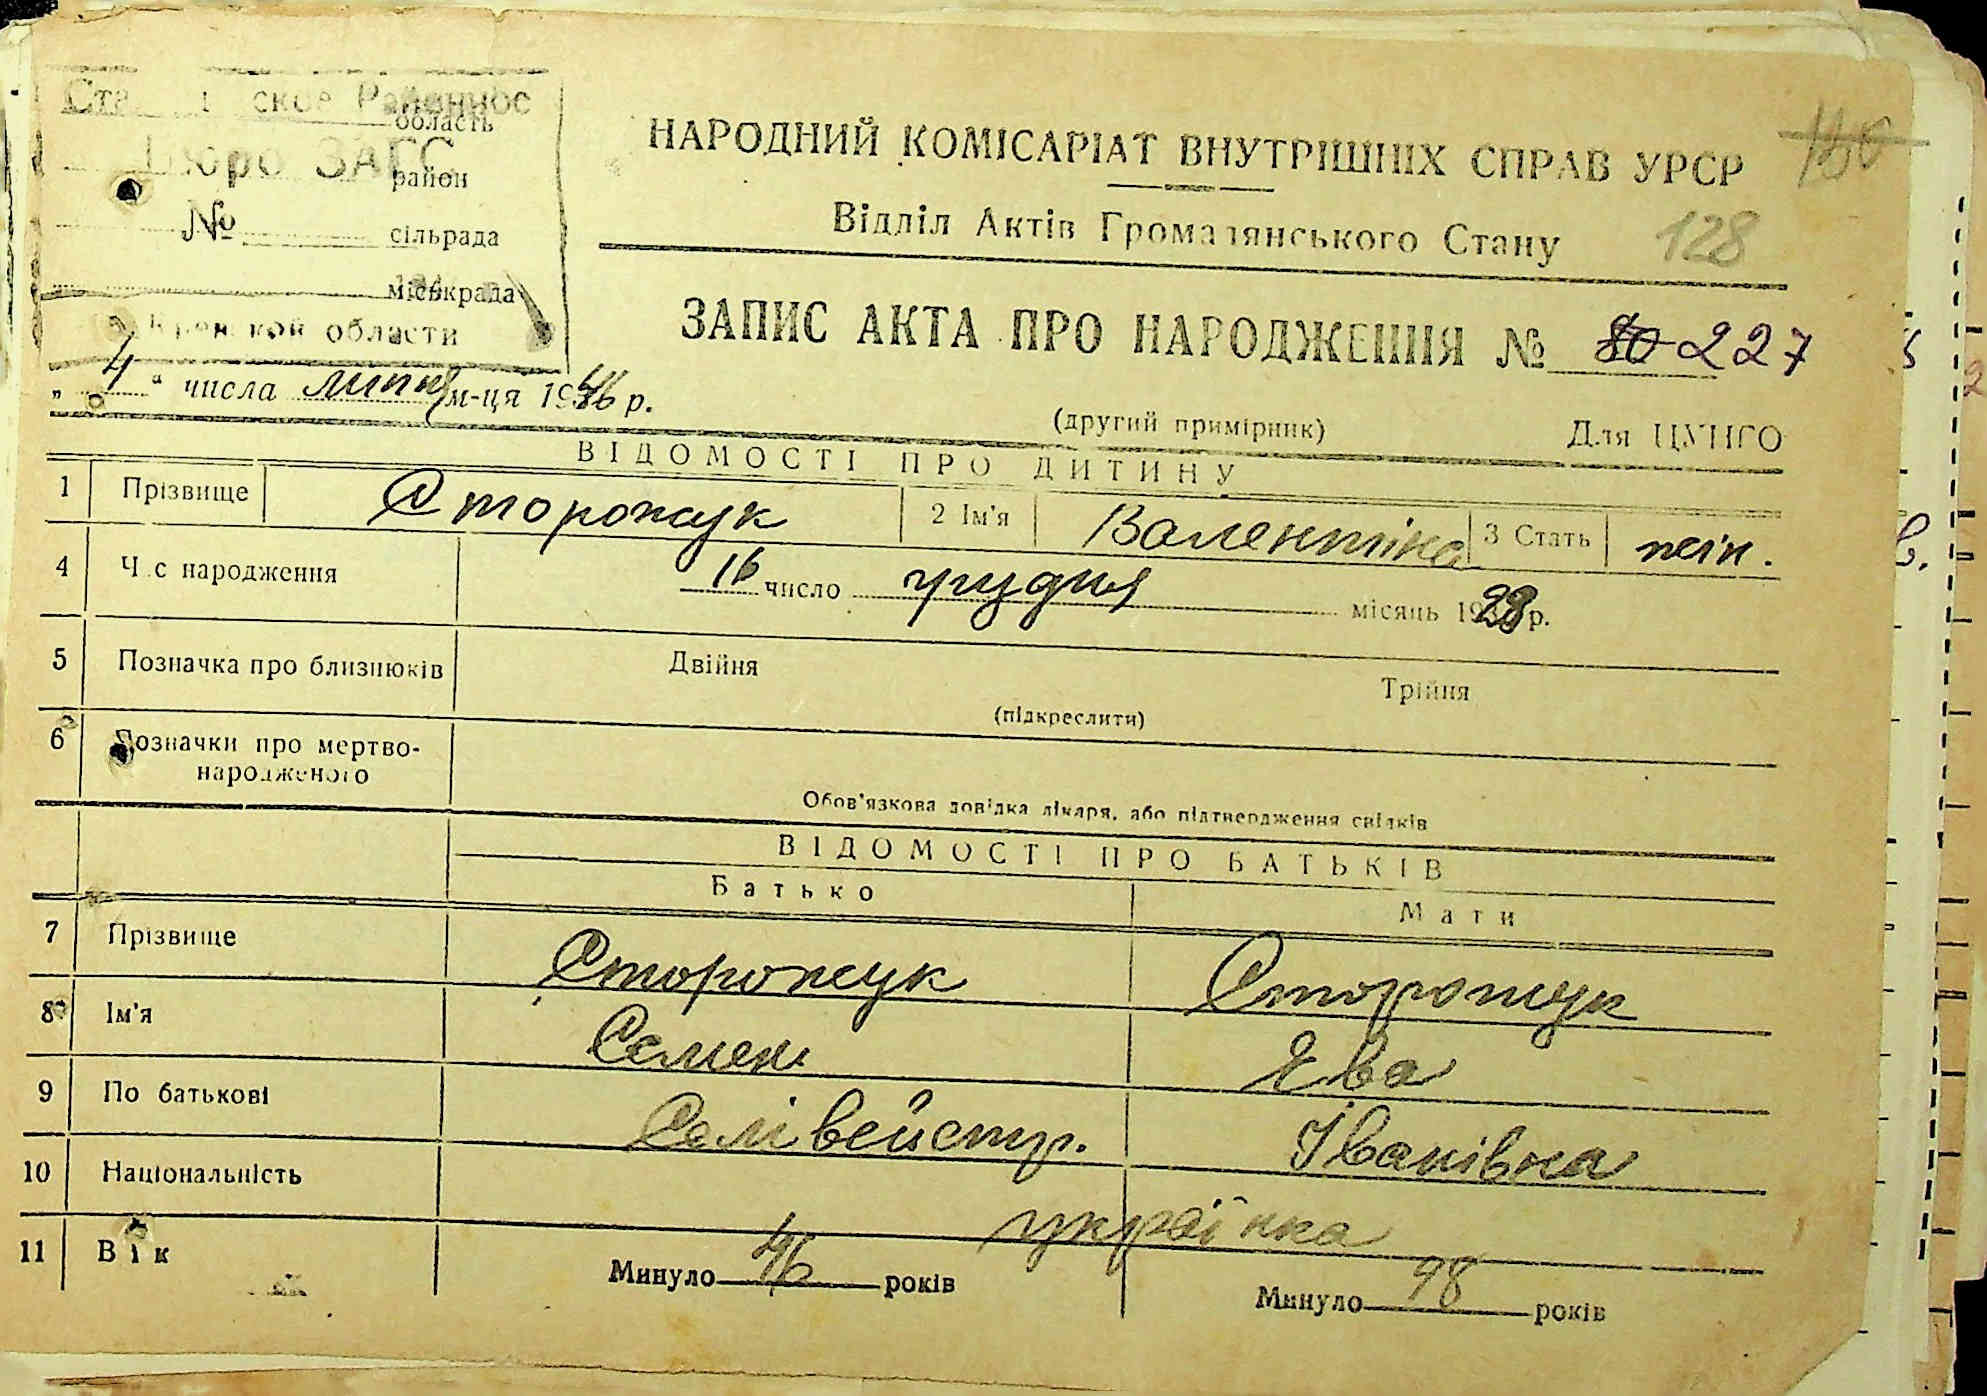 ское Районное
область
Бюро ЗАГС
район
№ сільрада
міськрада
области
„4“ числа липня м-ця 1946 р.
НАРОДНИЙ КОМІСАРІАТ ВНУТРІШНІХ СПРАВ УРСР
Відділ Актів Громадянського Стану 128
ЗАПИС АКТА ПРО НАРОДЖЕННЯ № 80 227
(другий примірник) Для ЦУНГО
ВІДОМОСТІ ПРО ДИТИНУ
1 Прізвище Сторожук 2 Ім'я Валентіна 3 Стать жін.
4 Ч с народження 16 число грудня місяць 1928 р.
5 Позначка про близнюків Двійня Трійня
(підкреслити)
6 Позначки про мертво-
народженого
Обов'язкова довідка лікаря, або підтвердження свідків
ВІДОМОСТІ ПРО БАТЬКІВ
Батько Мати
7 Прізвище Сторожук Сторожук
8 Ім'я Семен Ева
9 По батькові Селівейстр. Іванівна
10 Національність українка
11 Вік Минуло 46 років Минуло 98 років